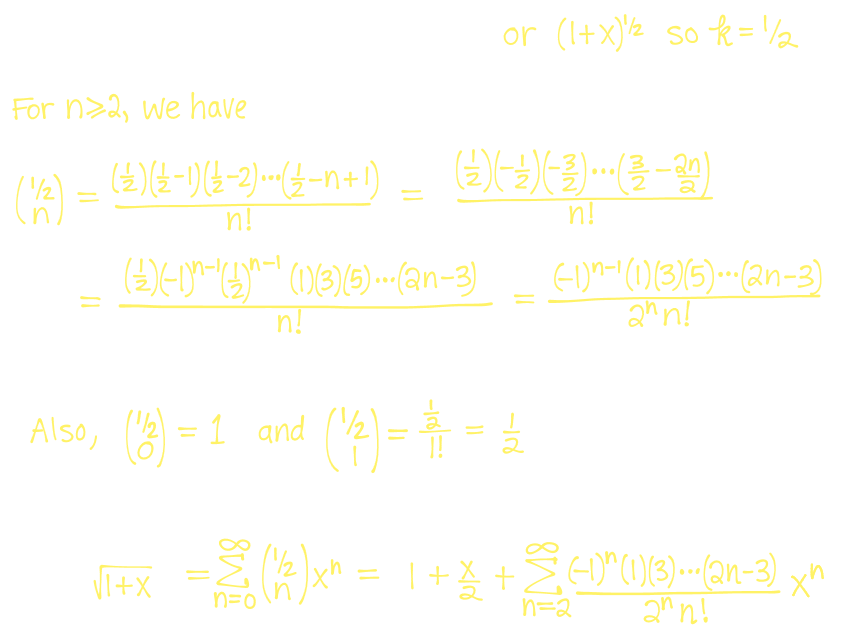 or (1+x)^{1/2} so k = 1/2
For n≥2, we have
\binom{1/2}{n} = \frac{(\frac{1}{2})(\frac{1}{2}-1)(\frac{1}{2}-2)\cdots(\frac{1}{2}-n+1)}{n!} = \frac{(\frac{1}{2})(-\frac{1}{2})(-\frac{3}{2})\cdots(\frac{3}{2}-\frac{2n}{2})}{n!}
= \frac{(\frac{1}{2})(-1)^{n-1}(\frac{1}{2})^{n-1}(1)(3)(5)\cdots(2n-3)}{n!} = \frac{(-1)^{n-1}(1)(3)(5)\cdots(2n-3)}{2^n n!}
Also, \binom{1/2}{0} = 1 and \binom{1/2}{1} = \frac{\frac{1}{2}}{1!} = \frac{1}{2}
\sqrt{1+x} = \sum_{n=0}^{\infty} \binom{1/2}{n} x^n = 1 + \frac{x}{2} + \sum_{n=2}^{\infty} \frac{(-1)^n(1)(3)\cdots(2n-3)}{2^n n!} x^n